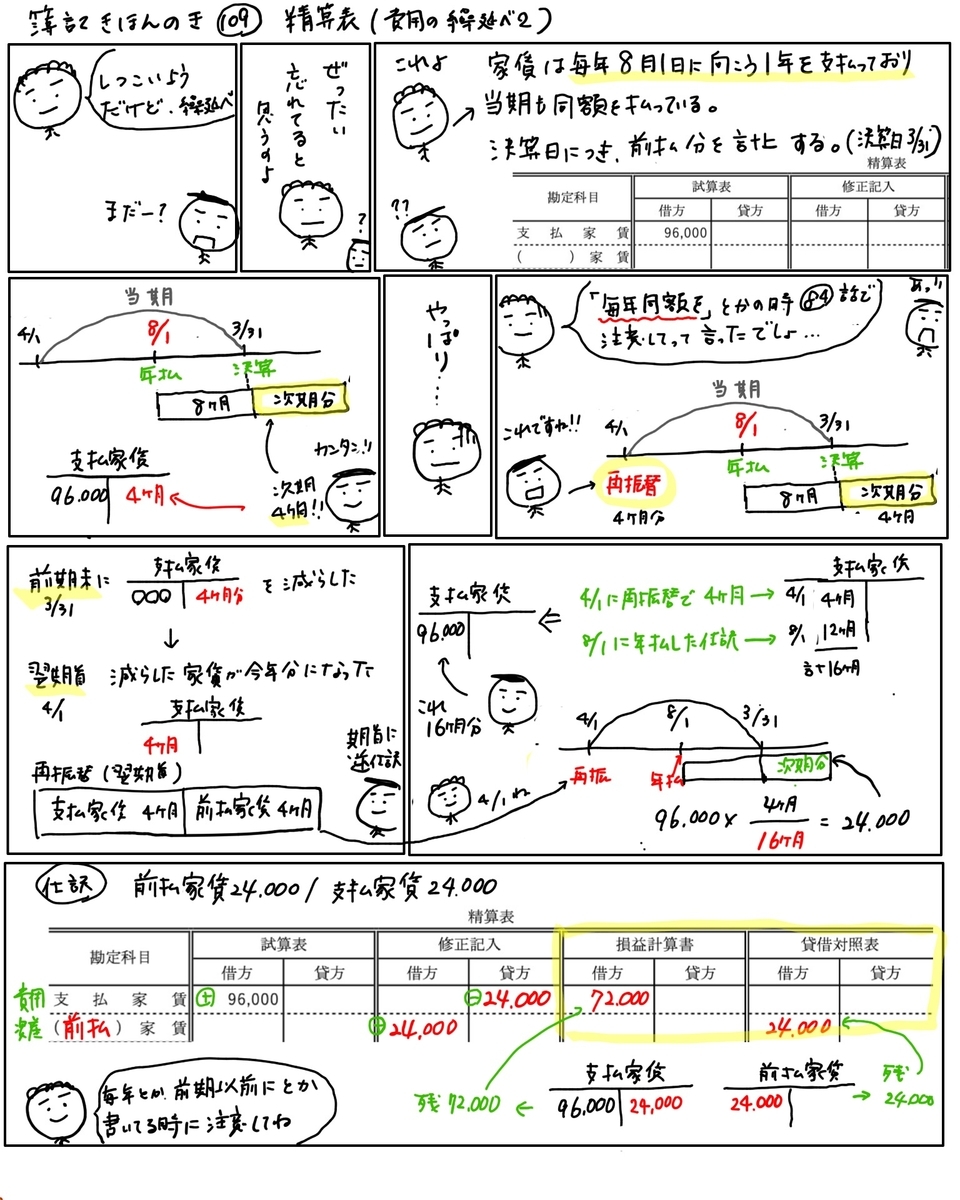 簿記きほんのき 109 精算表(費用の繰延べ2)
しつこいよう
だけど、繰延べ
まだー?
ぜったい
忘れてると
思うのよ
?
これよ
??
家賃は毎年8月1日に向こう1年を支払っており
当期も同額を払っている。
決算日につき、前払分を計上する。(決算日3/31)
精算表
勘定科目 試算表 修正記入
借方 貸方 借方 貸方
支払家賃 96,000
( )家賃
当期
4/1 8/1 3/31
年払 決算
8ヶ月 次期分
支払家賃
96.000 4ヶ月
次期
4ヶ月!!
カンタン!!
やっぱり…
「毎年同額を」とかの時 84 話で
注意してって言ったでしょ…
あっ!!
これですね!!
当期
4/1 8/1 3/31
再振替 年払 決算
4ヶ月分
8ヶ月 次期分
4ヶ月
前期末に
3/31
支払家賃
○○○ 4ヶ月分
を減らした
↓
翌期首 減らした家賃が今年分になった
4/1
支払家賃
4ヶ月
再振替(翌期首)
支払家賃 4ヶ月 前払家賃 4ヶ月
期首に
逆仕訳
支払家賃
96.000
これ
16ヶ月分
4/1に再振替で4ヶ月→
8/1に年払した仕訳→
支払家賃
4/1 4ヶ月
8/1 12ヶ月
計16ヶ月
4/1ね
4/1 8/1 3/31
再振 年払 次期分
96.000× 4ヶ月/16ヶ月 = 24.000
仕訳 前払家賃24.000/支払家賃24.000
精算表
勘定科目 試算表 修正記入 損益計算書 貸借対照表
借方 貸方 借方 貸方 借方 貸方 借方 貸方
費用 支払家賃 + 96,000 - 24.000 72.000
資産 (前払)家賃 + 24.000 24.000
毎年とか前期以前にとか
書いてる時に注意してね
残72.000 ←
支払家賃
96,000 24,000
前払家賃
24.000
→ 残
24.000